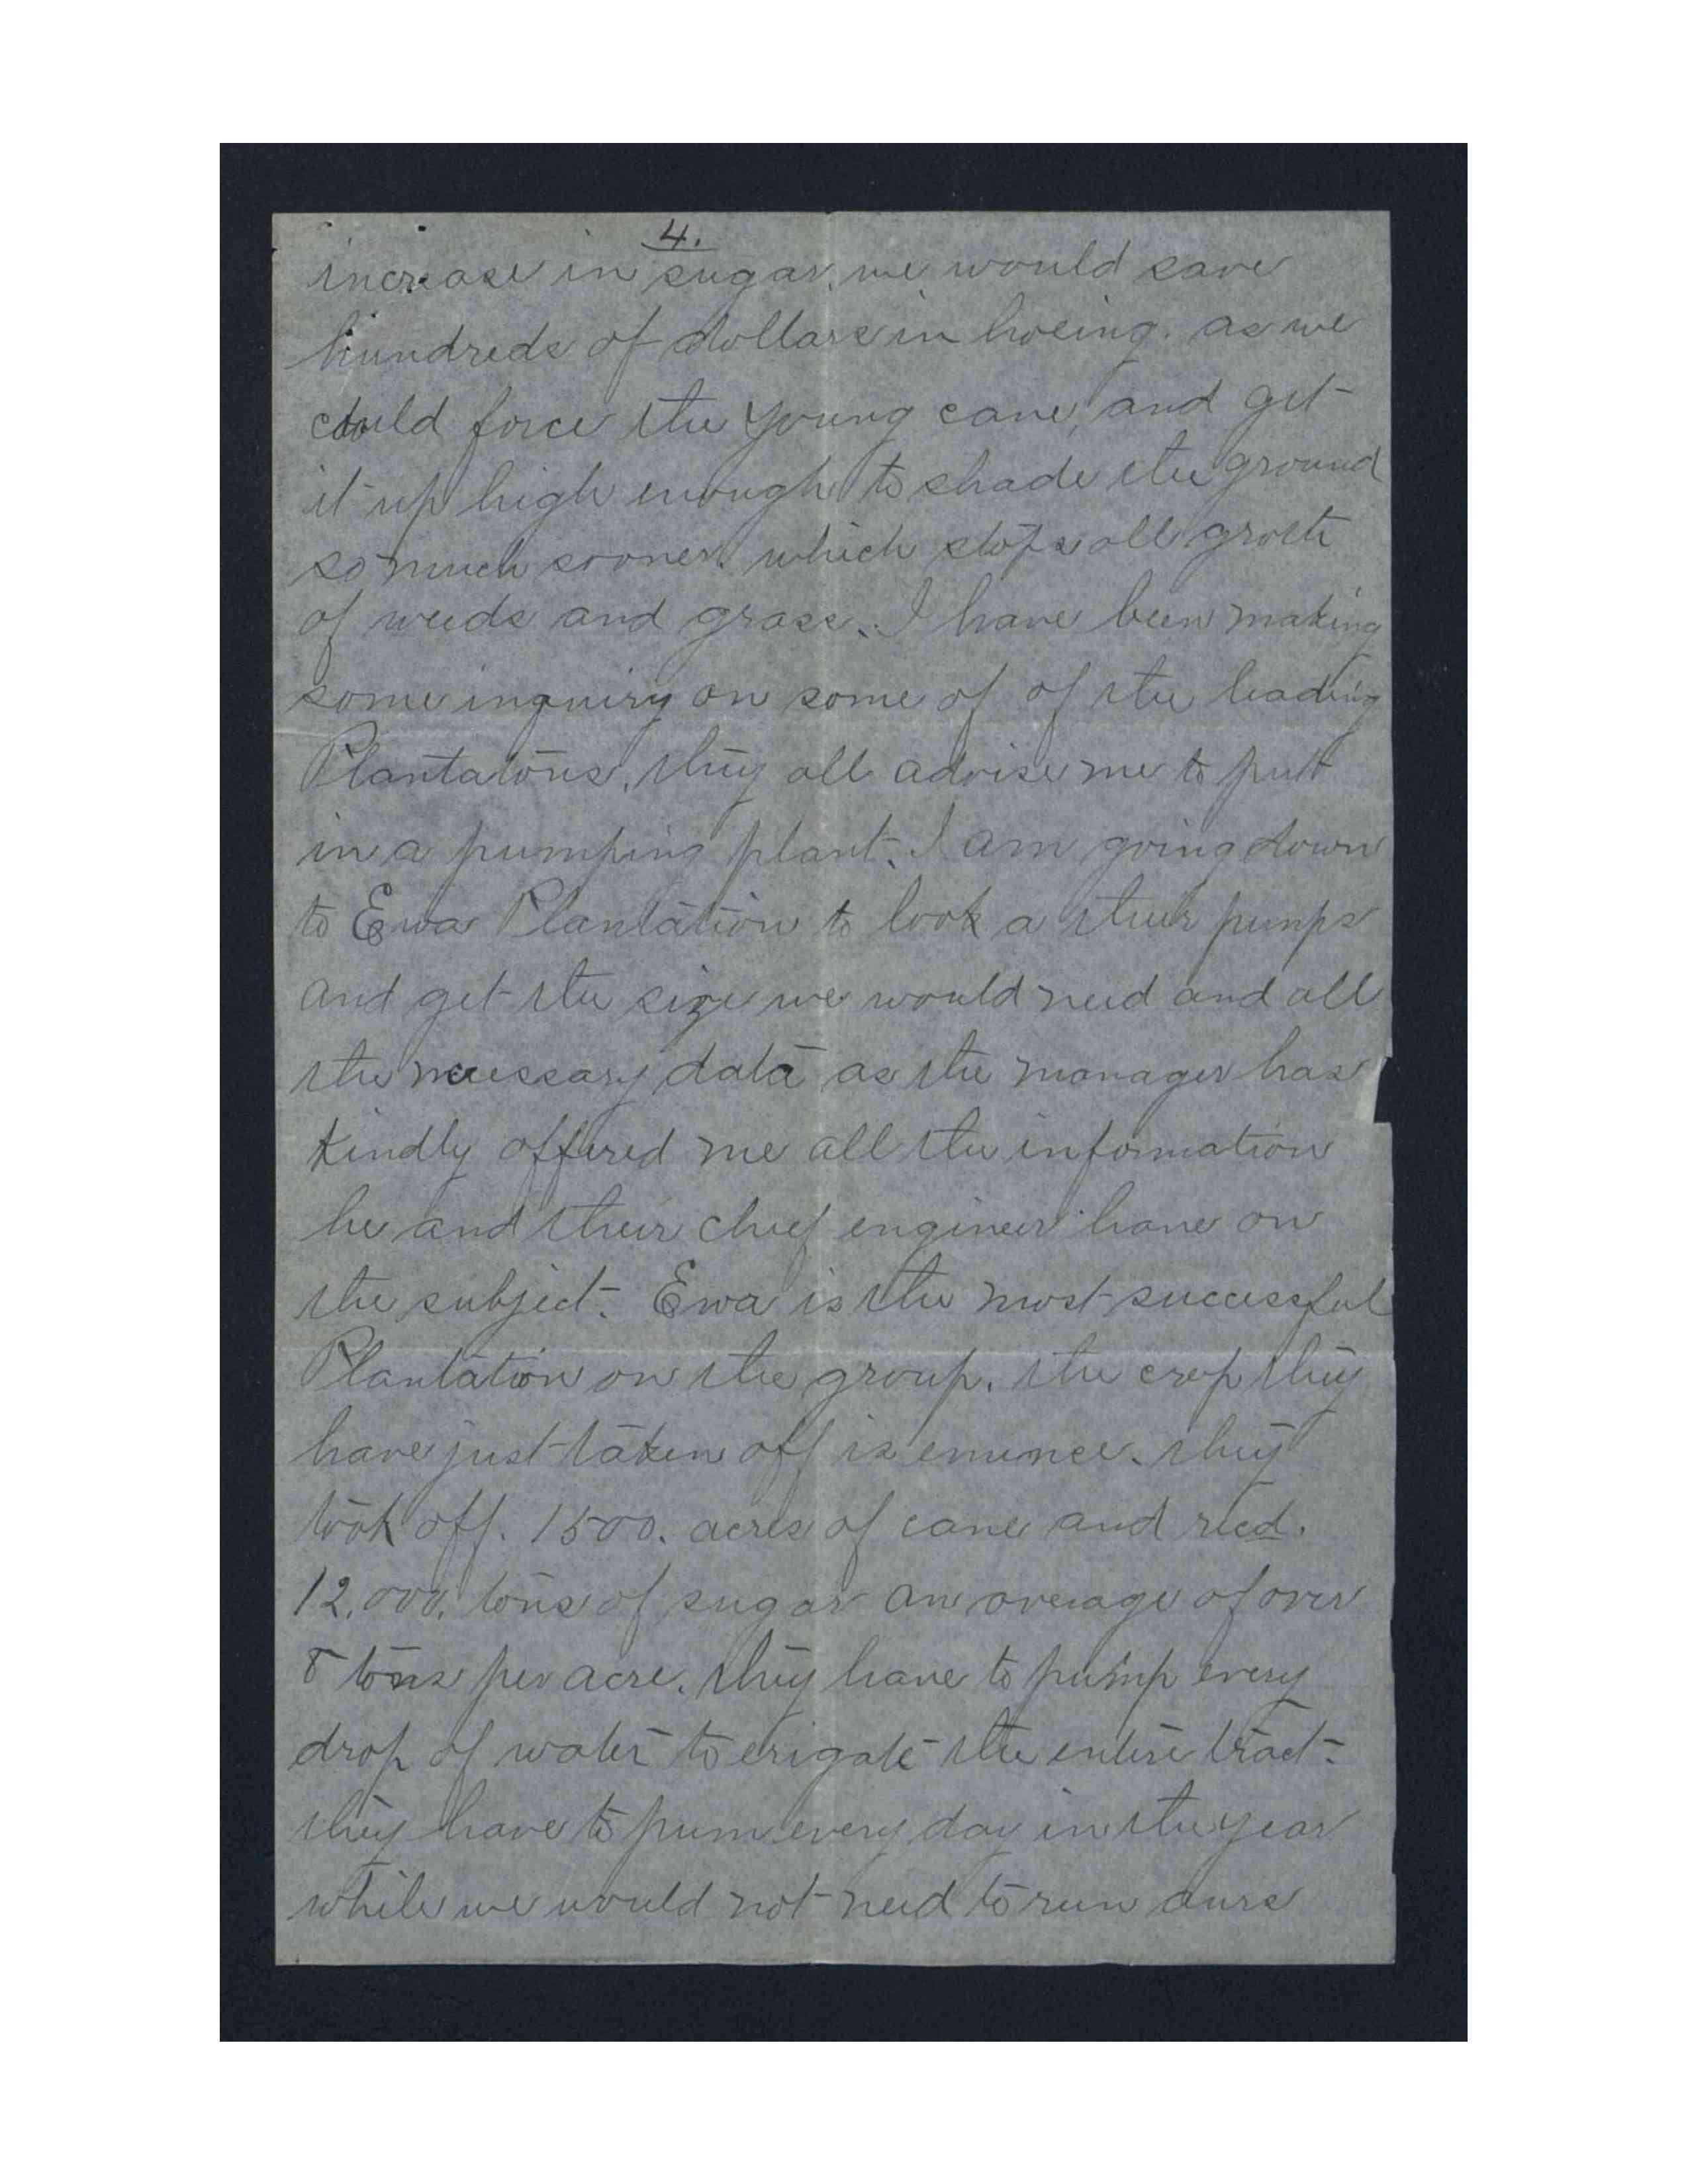 4.
increase in sugar. we would save
hundreds of dollars in hoeing. as we
could force the young cane, and get
it up high enough to shade the ground
so much sooner. which stops all groth
of weeds and grass. I have been making
some inquiry on some of of the leading
Plantatons. they all advise me to put
in a pumping plant. I am going down
to Ewa Plantation to look a their pumps
and get the size we would need and all
the necessary data as the manager has
kindly offered me all the information
he and their chief engineer have on
the subject. Ewa is the most successful
Plantation on the group. the crop they
have just taken off is emence. they
took off. 1500. acres of cane and recd.
12.000. tons of sugar an average of over
8 tons per acre. they have to pump every
drop of water to erigate the entire tract.
they have to pum every day in the year
while we would not need to run ours